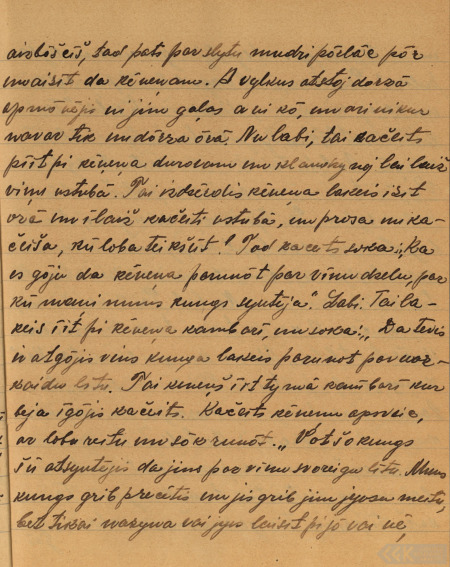 aizbīšeiš, tad pats par slytu mudri pōrlāc pōr
un aisit da kēneņam. A vylkus atstoj dorzā
                ni jim gaļas a ni kō, un ari ni kur
navar tik nu dōrza ōrā. Nu labi, tai kačeits
pīit pi kēneņa durovom un klauvej, naj lai laiž
viņu ustubā. Tai izdzērdis kēneņa lakejs īsit
orā un īlaiž kačeiti ustubā, un prosa nu ka-
čeiša, kū loba teikšiit! Tad kaceits soka: „Ka
es gōju da kēneņa parunōt par vīnu dzelu, par
kū mani muns kungs syutyja". Labi. Tai la-
kejs īīt pi kēneņa kambarī, un soka: „Da tevis
ir atgōjis vīns kunga lakejs parunot par naz-
kaidu lītu. Tai kēneņš īīt tymā kambarī kur
beja īgōjis kačeits. Kačeits kēneņu apsveic,
ar lobu reitu un sōk runōt. „Vot šo kungs
šū atsyutejis da jims par vīnu svareigu lītu. Muns
kungs grib precētīs un jis grib jim jyusu meitu,
bet tikai nazynu vai jyus laisit pi jō vai nē,